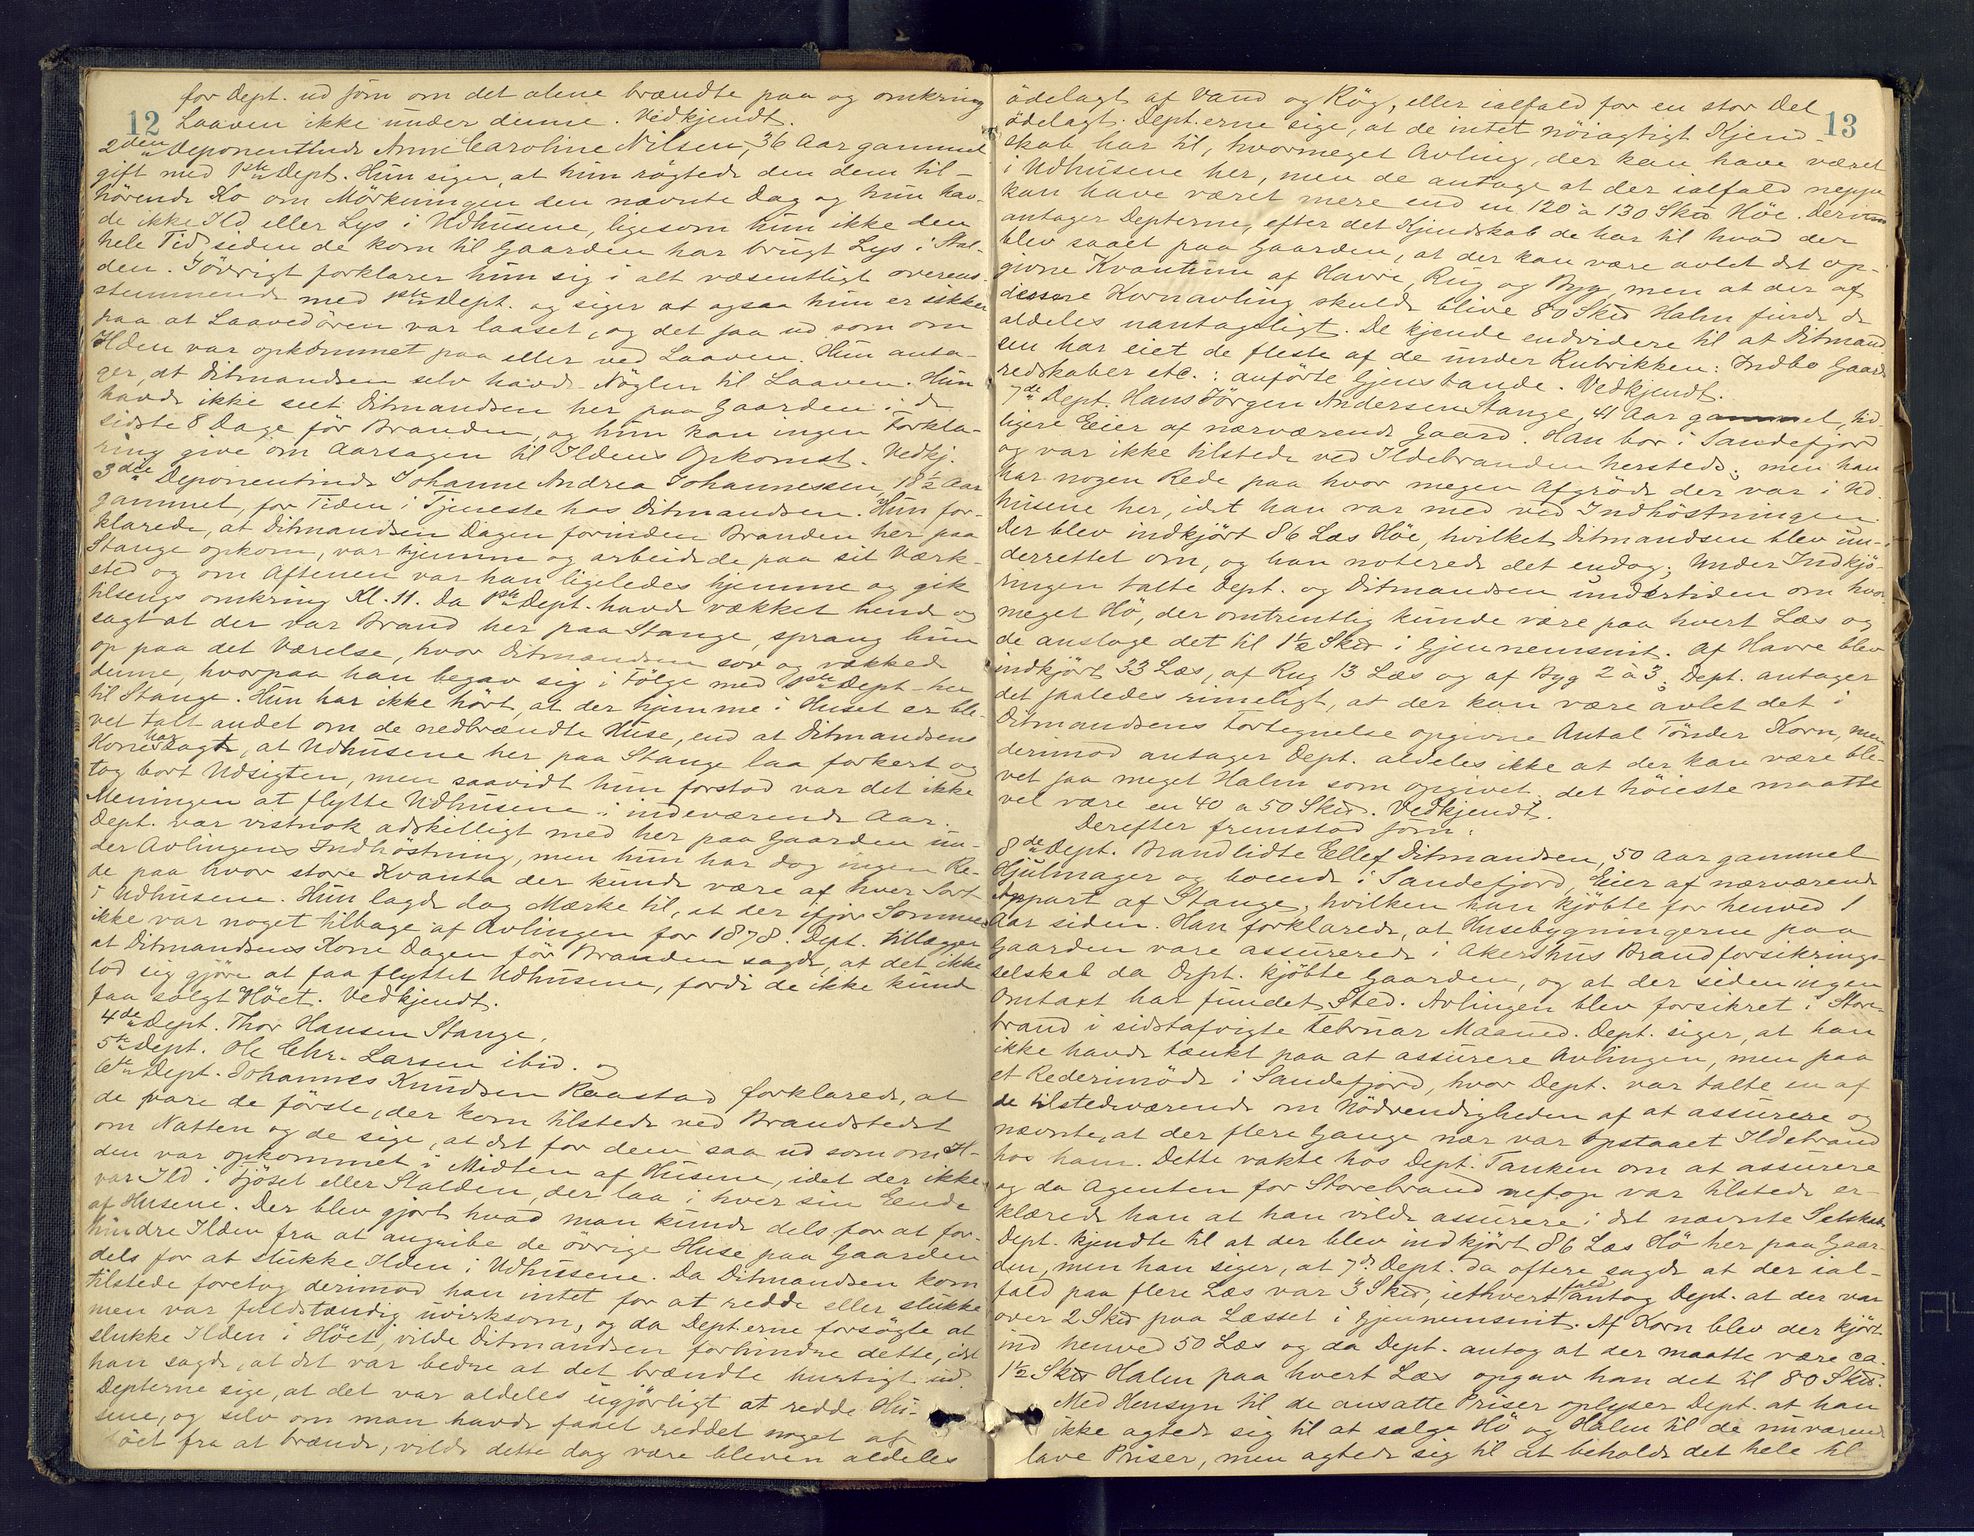 12
for Dept. ud som om det alene brændte paa og omkring
Laaven ikke under denne. Vedkjendt.
2den Deponentinde Anne Caroline Nilsen, 36 Aar gammel
gift med 1ste Dept. Hun siger, at hun røgtede den dem til-
hørende Ko om Mörkningen den nævnte Dag og hun hav-
de ikke Ild eller Lys i Udhusene, ligesom hun ikke den
hele Tid siden de kom til Gaarden har brugt Lys i Stal-
den. Iövrigt forklarer hun sig i alt væsentligt overens-
stemmende med 1ste Dept. og siger at ogsaa hun er sikker
paa at Laavedören var laaset, og det saa ud som om
Ilden var opkommet paa eller ved Laaven. Hun anta-
ger, at Ditmandsen selv havde Nöglen til Laaven. Hun
havde ikke seet Ditmandsen her paa Gaarden i de
sidste 8 Dage för Branden, og hun kan ingen Forkla-
ring give om Aarsagen til Ildens Opkomst. Vedkj.
3die Deponentinde Johanne Andrea Johannessen, 18½ Aar
gammel, for Tiden i Tjeneste hos Ditmandsen. Hun for-
klarede, at Ditmandsen Dagen forinden Branden her paa
Stange opkom, var hjemme og arbeidede paa sit Værk-
sted og om Aftenen var han ligeledes hjemme og gik
tilsengs omkring Kl. 11. Da 1ste Dept. havde vækket hende og
sagt at der var Brand her paa Stange, sprang hun
op paa det Værelse, hvor Ditmandsen sov og vækkede
denne, hvorpaa han begav sig i Følge med 1ste Dept. her
til Stange. Hun har ikke hört, at der hjemme i Huset er ble-
vet talt andet om de nedbrændte Huse, end at Ditmandsens
Kone har sagt, at Udhusene her paa Stange laa forkert og
tog bort Udsigten, men saavidt hun forstod var det ikke
Meningen at flytte Udhusene i indeværende Aar.
Dept. var vistnok adskilligt med her paa Gaarden un-
der Avlingens Indhöstning, men hun har dog ingen Re-
de paa hvor store Kvanta der kunde være af hver Sort
i Udhusene. Hun lagde dog Mærke til, at der ifjor Sommer
ikke var noget tilbage af Avlingen for 1878. Dept. tillægger
at Ditmandsens Kone Dagen för Branden sagde, at det ikke
lod sig gjöre at faa flyttet Udhusene, fordi de ikke kunde
faa solgt Höet. Vedkjendt.
4de Dept. Thor Hansen Stange,
5te Dept. Chr. Larsen ibid. og
6te Dept. Johannes Knudsen Raastad forklarede, at
de vare de förste, der kom tilstede ved Brandstedet
om Natten og de sige, at det for dem saa ud som om Il-
den var opkommet i Midten af Husene, idet der ikke
var Ild i Fjöset eller Stalden, der laa i hver sin Ende
af Husene. Der blev gjort hvad man kunde dels for at for-
hindre Ilden fra at angribe de övrige Huse paa Gaarden
dels for at slukke Ilden i Udhusene. Da Ditmandsen kom
tilstede foretog derimod han intet for at redde eller slukke
men var fuldstændig uvirksom, og da Dept.erne forsøgte at
slukke Ilden i Höet, vilde Ditmandsen forhindre dette, idet
han sagde, at det var bedre at det brændte hurtigt ud.
Depterne sige, at det var aldeles ugjörligt at redde Hu-
sene, og selv om man havde faaet reddet noget af
Höet fra at brænde, vilde dette dog være bleven aldeles
13
ödelagt af Vand og Røg, eller ialfald for en stor Del
ödelagt. Dept.erne sige, at de intet nöiagtigt Kjend-
skab har til, hvormeget Avling, der kan have været
i Udhusene her, men de antage at der ialfald neppe
kan have været mere end en 120 à 130 Sk℔ Höe. Derimod
antager Depterne, efter det Kjendskab de har til hvad der
blev saaet paa Gaarden, at der kan være avlet det op-
givne Kvantum af Havre, Rug og Byg, men at der af
denne Kornavling skulde blive 80 Sk℔ Halm finde de
aldeles uantageligt. De kjende endvidere til at Ditmand-
sen har eiet de fleste af de under Rubrikken: Indbo Gaards-
redskaber etc.: anförte Gjenstande. Vedkjendt.
7de Dept. Hans Jörgen Andersen Stange, 41 Aar gammel, tid-
ligere Eier af nærværende Gaard. Han bor i Sandefjord
og var ikke tilstede ved Ildebranden hersteds; men han
har nogen Rede paa hvor megen Afgröde der var i Ud-
husene her, idet han var med ved Indhöstningen.
Der blev indkjört 86 Læs Höe, hvilket Ditmandsen blev un-
derrettet om, og han noterede det endog; Under Indkjö-
ringen talte Dept. og Ditmandsen undertiden om hvor
meget Hö, der omtrentlig kunde være paa hvert Læs og
de anslog det til 1½ Sk℔ i Gjennemsnit. Af Havre blev
indkjört 33 Læs, af Rug 13 Læs og af Byg 2 à 3. Dept. antager
det saaledes rimeligt, at der kan være avlet det i
Ditmandsens Fortegnelse opgivne Antal Tönder Korn, men
derimod antager Dept. aldeles ikke at der kan være ble-
vet saa meget Halm som opgivet, det höieste maatte
vel være en 40 a 50 Sk℔. Vedkjendt.
Derefter fremstod som:
8de Dept. Brandlidte Ellef Ditmandsen, 50 Aar gammel
Hjulmager og boende i Sandefjord, Eier af nærværende
Appart af Stange, hvilken han kjöbte for henved 1
Aar siden. Han forklarede, at Husebygningerne paa
Gaarden vare assurerede i Akershus Brandforsikrings-
selskab da Dept. kjöbte Gaarden, og at der siden ingen
Omtaxt har fundet Sted. Avlingen blev forsikret i Store-
brand i sidstafvigte Februar Maaned. Dept. siger, at han
ikke havde tænkt paa at assurere Avlingen, men paa
et Rederimöde i Sandefjord, hvor Dept. var talte en af
de tilstedeværende om Nödvendigheden af at assurere og
nævnte, at der flere Gange nær var opstaaet Ildebrand
hos ham. Dette vakte hos Dept. Tanken om at assurere
og da Agenten for Storebrand netop var tilstede er-
klærede han at han vilde assurere i det nævnte Selskab.
Dept. kjendte til at der blev indkjört 86 Læs Hö her paa Gaar-
den, men han siger, at 7de Dept. da oftere sagde at der ial-
fald paa flere Læs var 3 Sk℔, iethvert fald antog Dept. at der var
over 2 Sk℔ paa Læsset i Gjennemsnit. Af Korn blev der kjört
ind henved 50 Læs og da Dept. antog at der maatte være ca.
1½ Sk℔ Halm paa hvert Læs opgav han det til 80 Sk℔.
Med Hensyn til de ansatte Priser oplyser Dept. at han
ikke agtede sig til at sælge Hö og Halm til de nuværende
lave Priser, men agtede sig til at beholde det hele til